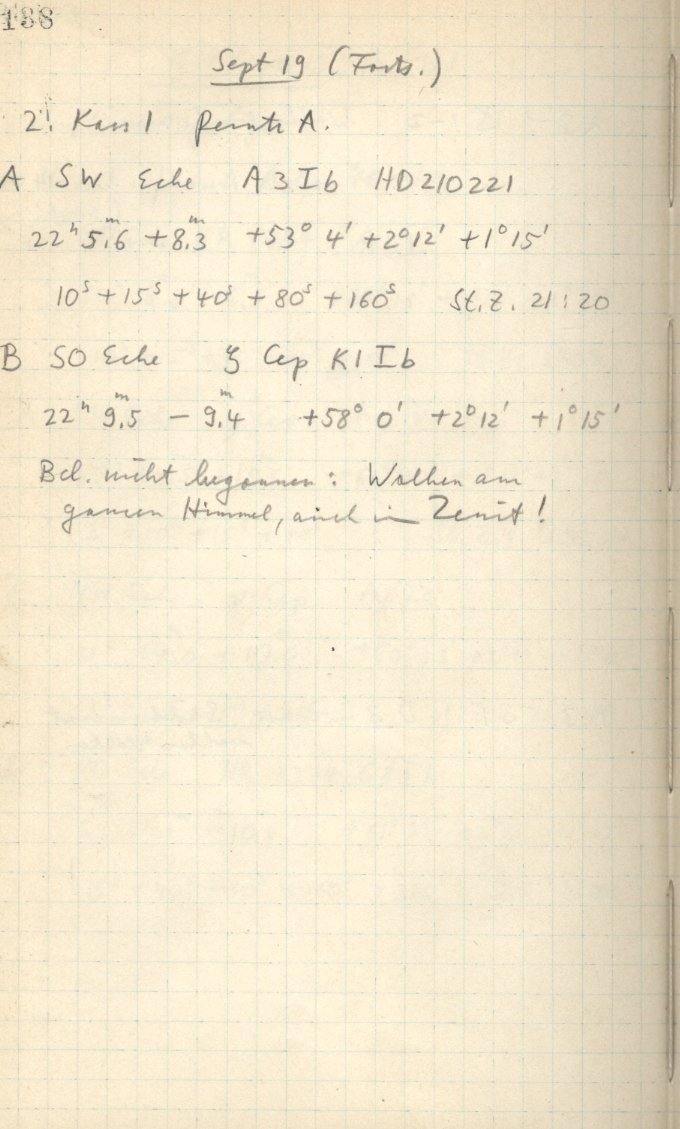 188
Sept 19 (Forts.)
2. Kass 1 A.
A SW Ecke A3Ib HD210221
22ʰ 5ᵐ.6 +8ᵐ.3 +53° 4' +2°12' +1°15'
10ˢ +15ˢ +40ˢ +80ˢ +160ˢ St.Z. 21:20
B SO Ecke ζ Cep K1Ib
22ʰ 9ᵐ.5 – 9ᵐ.4 +58° 0' +2°12' +1°15'
Bel. nicht begonnen: Wolken am
ganzen Himmel, auch im Zenit!